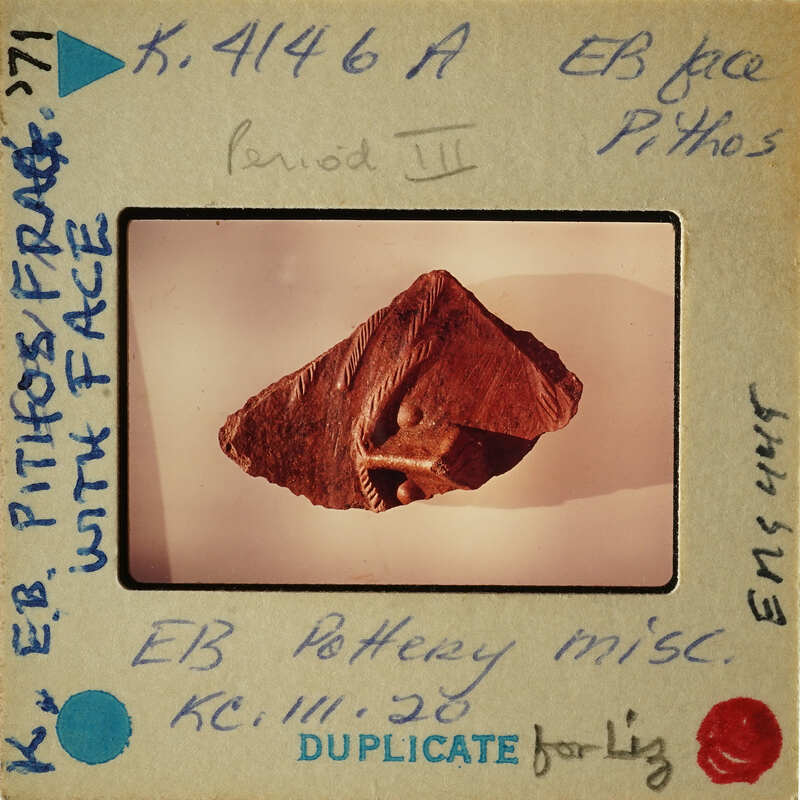 K. 4146 A
EB face
Pithos
Period III
K. E.B. PITHOS/FRAG. '71
WITH FACE
EMS 445
EB Pottery misc.
KC.111.20
DUPLICATE for Liz